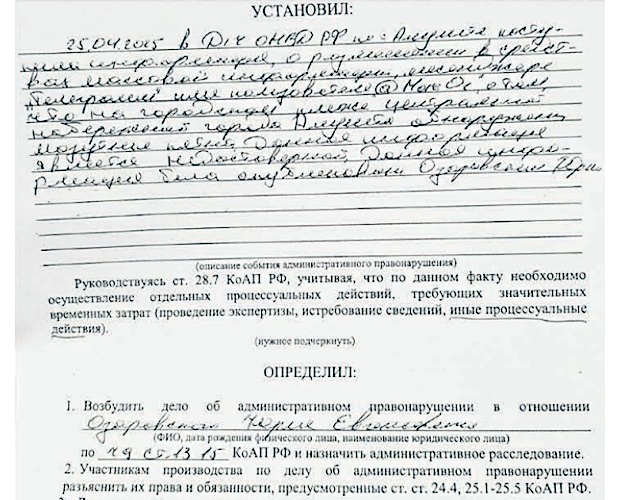 УСТАНОВИЛ:
25.04.2025 в ДЧ ОМВД РФ по г. Алушта посту-
пила информация, о размещении в средст-
вах массовой информации, мессенджере
"Телеграмм" ником пользователя о том,
что на городском пляже центральной
набережной города Алушта обнаружены
мазутные пятна. Данная информация
является недостоверной. Данная инфо-
рмация была опубликована Озаровским
(описание события административного правонарушения)
Руководствуясь ст. 28.7 КоАП РФ, учитывая, что по данному факту необходимо
осуществление отдельных процессуальных действий, требующих значительных
временных затрат (проведение экспертизы, истребование сведений, иные процессуальные
действия).
(нужное подчеркнуть)
ОПРЕДЕЛИЛ:
1. Возбудить дело об административном правонарушении в отношении
Озаровского Юрия Евгеньевича
(ФИО, дата рождения физического лица, наименование юридического лица)
по ч 9 ст. 13 15 КоАП РФ и назначить административное расследование.
2. Участникам производства по делу об административном правонарушении
разъяснить их права и обязанности, предусмотренные ст. ст. 24.4, 25.1-25.5 КоАП РФ.